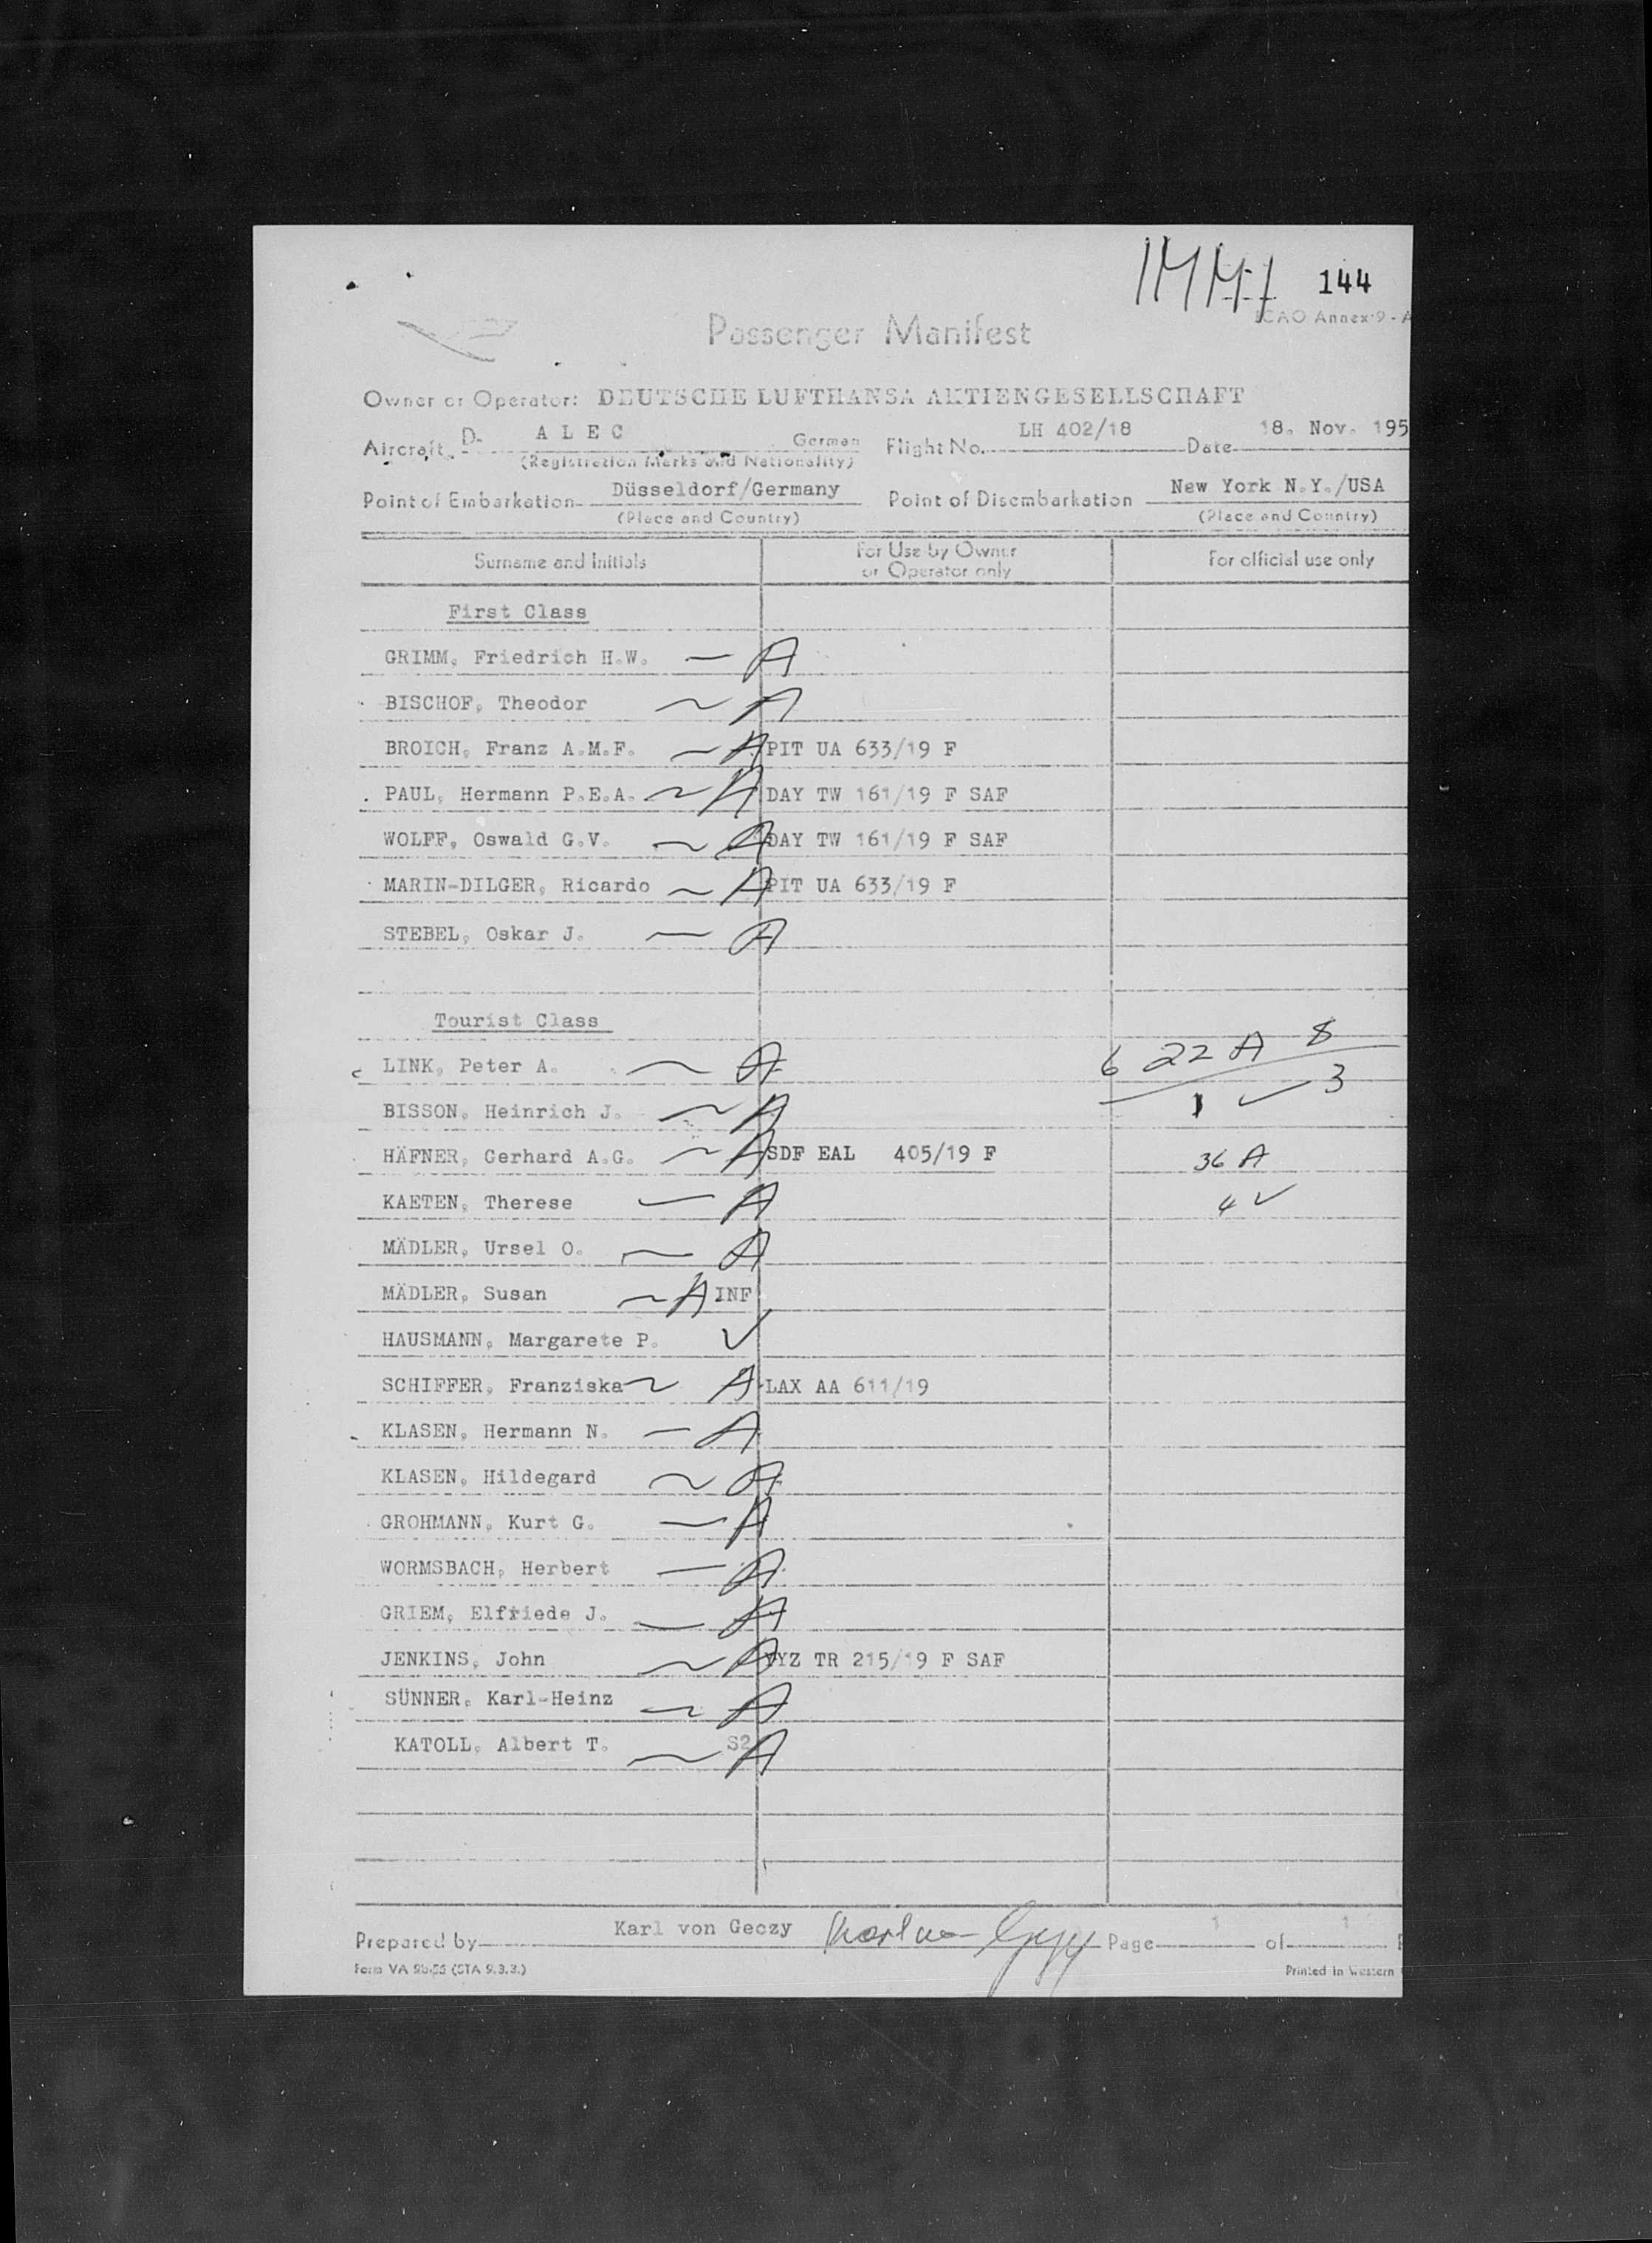 IMMI 144
ICAO Annex 9 - A
Passenger Manifest
Owner or Operator: DEUTSCHE LUFTHANSA AKTIENGESELLSCHAFT
Aircraft D- A L E C German Flight No. LH 402/18 Date 18. Nov. 195
(Registration Marks and Nationality)
Point of Embarkation Düsseldorf/Germany Point of Disembarkation New York N.Y./USA
(Place and Country) (Place and Country)
Surname and Initials For Use by Owner or Operator only For official use only
First Class
GRIMM, Friedrich H.W. — A
BISCHOF, Theodor ~ A
BROICH, Franz A.M.F. ~ A PIT UA 633/19 F
PAUL, Hermann P.E.A. ~ A DAY TW 161/19 F SAF
WOLFF, Oswald G.V. ~ A DAY TW 161/19 F SAF
MARIN-DILGER, Ricardo ~ A PIT UA 633/19 F
STEBEL, Oskar J. — A
Tourist Class
LINK, Peter A. ~ A 6 22 A 8
BISSON, Heinrich J. ~ A 1 ✓ 3
HÄFNER, Gerhard A.G. ~ A SDF EAL 405/19 F 36 A
KAETEN, Therese — A 4 ✓
MÄDLER, Ursel O. — A
MÄDLER, Susan ~ A INF
HAUSMANN, Margarete P. ✓
SCHIFFER, Franziska ~ A LAX AA 611/19
KLASEN, Hermann N. — A
KLASEN, Hildegard ~ A
GROHMANN, Kurt G. — A
WORMSBACH, Herbert — A
GRIEM, Elfriede J. — A
JENKINS, John ~ A YYZ TR 215/19 F SAF
SÜNNER, Karl-Heinz ~ A
KATOLL, Albert T. S2 ~ A
Prepared by Karl von Geczy Karl von Geczy Page 1 of 1
Form VA 9b-55 (STA 9.3.3.) Printed in Western